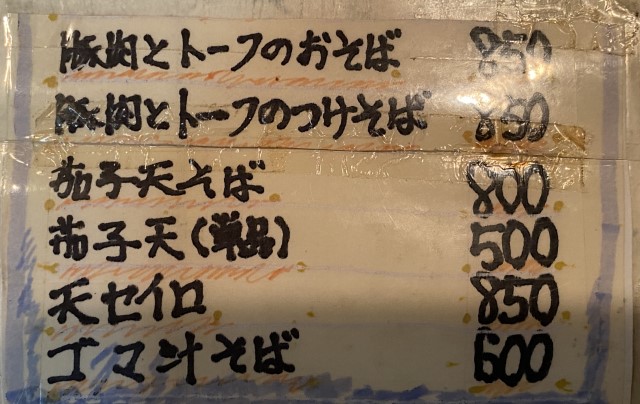 豚肉とトーフのおそば 850
豚肉とトーフのつけそば 850
茄子天そば 800
茄子天(単品) 500
天セイロ 850
ゴマ汁そば 600